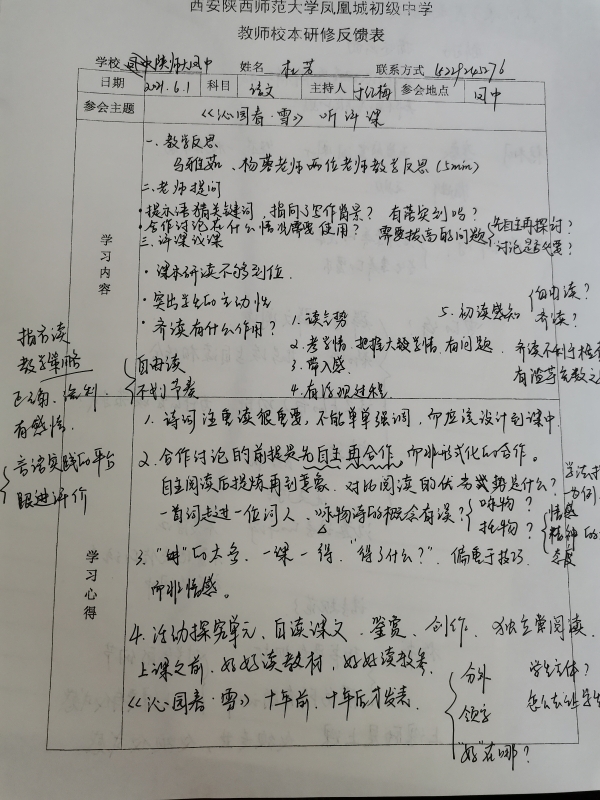 西安陕西师范大学凤凰城初级中学
教师校本研修反馈表
学校 姓名 杜芳 联系方式
日期 2021.6.1 科目 语文 主持人 于红梅 参会地点 凤中
参会主题 《沁园春·雪》 听评课
学习内容
一、教学反思
杨燕老师两位老师教学反思(5min)
二、老师提问
·提示语猜关键词,指向了写作背景?有落实到吗?
·合作讨论在什么情况需要使用?需要拔高的问题 先自主再探讨?
讨论是否必要?
三、评课议课
·课本研读不够到位
·突出学生的主动性
·齐读有什么作用?
自由读
不划节奏
1.读气势
2.考学情,把握大数学情,有问题
3.带入感
4.有治理过程
5.初读感知 自由读?
齐读?
指名读
教学策略
有感情
言语实践的平台
跟进评价
学习心得
1.诗词注重读很重要,不能单单强调,而应该设计到课中
2.合作讨论的前提是先自主再合作,而非形式化的合作。
自主阅读后提炼再到意象,对比阅读的优劣势是什么?
一首词走进一位词人,咏物诗的概念有误? 咏物?
托物?
情感
精神的
3."一课一得,"得了什么?"偏重于技巧
而非情感。
4.活动探究单元、自读课文、鉴赏、创作、独立崇阅读.
上课之前,好好读教材,好好读教参.
《沁园春·雪》十年前,十年后才发表.
分外 学生主体?
领字
"好"在哪?